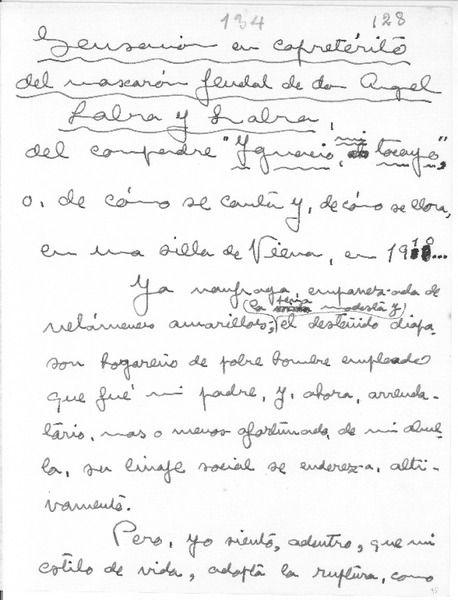 134 128
Sensación en copretérito
del mascarón feudal de don Angel
Labra y Labra,
del compadre "Ygnacio, mi tocayo",
o, de cómo se canta y, de cómo se llora,
en una silla de Viena, en 1910...
Ya naufraga, empavezada de
(la tenia modesta y)
velámenes amarillos, el desteñido diapa-
son hogareño de pobre hombre empleado
que fué mi padre, y, ahora, arrenda-
tário, mas o menos afortunado, de mi abue-
la, su linaje social se endereza, alti-
vamente.
Pero, yo siento, adentro, que mi
estilo de vida, adopta la ruptura, como